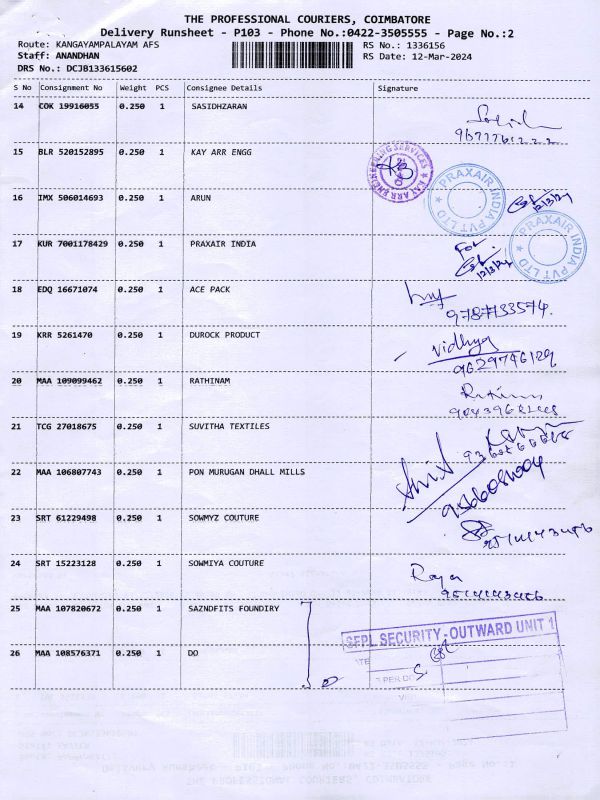 THE PROFESSIONAL COURIERS, COIMBATORE
Delivery Runsheet - P103 - Phone No.:0422-3505555 - Page No.:2
Route: KANGAYAMPALAYAM AFS RS No.: 1336156
Staff: ANANDHAN RS Date: 12-Mar-2024
DRS No.: DCJB133615602
S No Consignment No Weight PCS Consignee Details Signature
14 COK 19916055 0.250 1 SASIDHZARAN
15 BLR 520152895 0.250 1 KAY ARR ENGG
KAY ARR ENGINEERING SERVICES
16 IMX 506014693 0.250 1 ARUN
PRAXAIR INDIA PVT LTD
12/3/24
17 KUR 7001178429 0.250 1 PRAXAIR INDIA
For
12/3/24
PRAXAIR INDIA PVT LTD
18 EDQ 16671074 0.250 1 ACE PACK
9787133574.
19 KRR 5261470 0.250 1 DUROCK PRODUCT
vidhya
9629746129
20 MAA 109099462 0.250 1 RATHINAM
21 TCG 27018675 0.250 1 SUVITHA TEXTILES
22 MAA 106807743 0.250 1 PON MURUGAN DHALL MILLS
23 SRT 61229498 0.250 1 SOWMYZ COUTURE
24 SRT 15223128 0.250 1 SOWMIYA COUTURE
Raja
25 MAA 107820672 0.250 1 SAZNDFITS FOUNDIRY
SFPL SECURITY-OUTWARD UNIT 1
26 MAA 108576371 0.250 1 DO